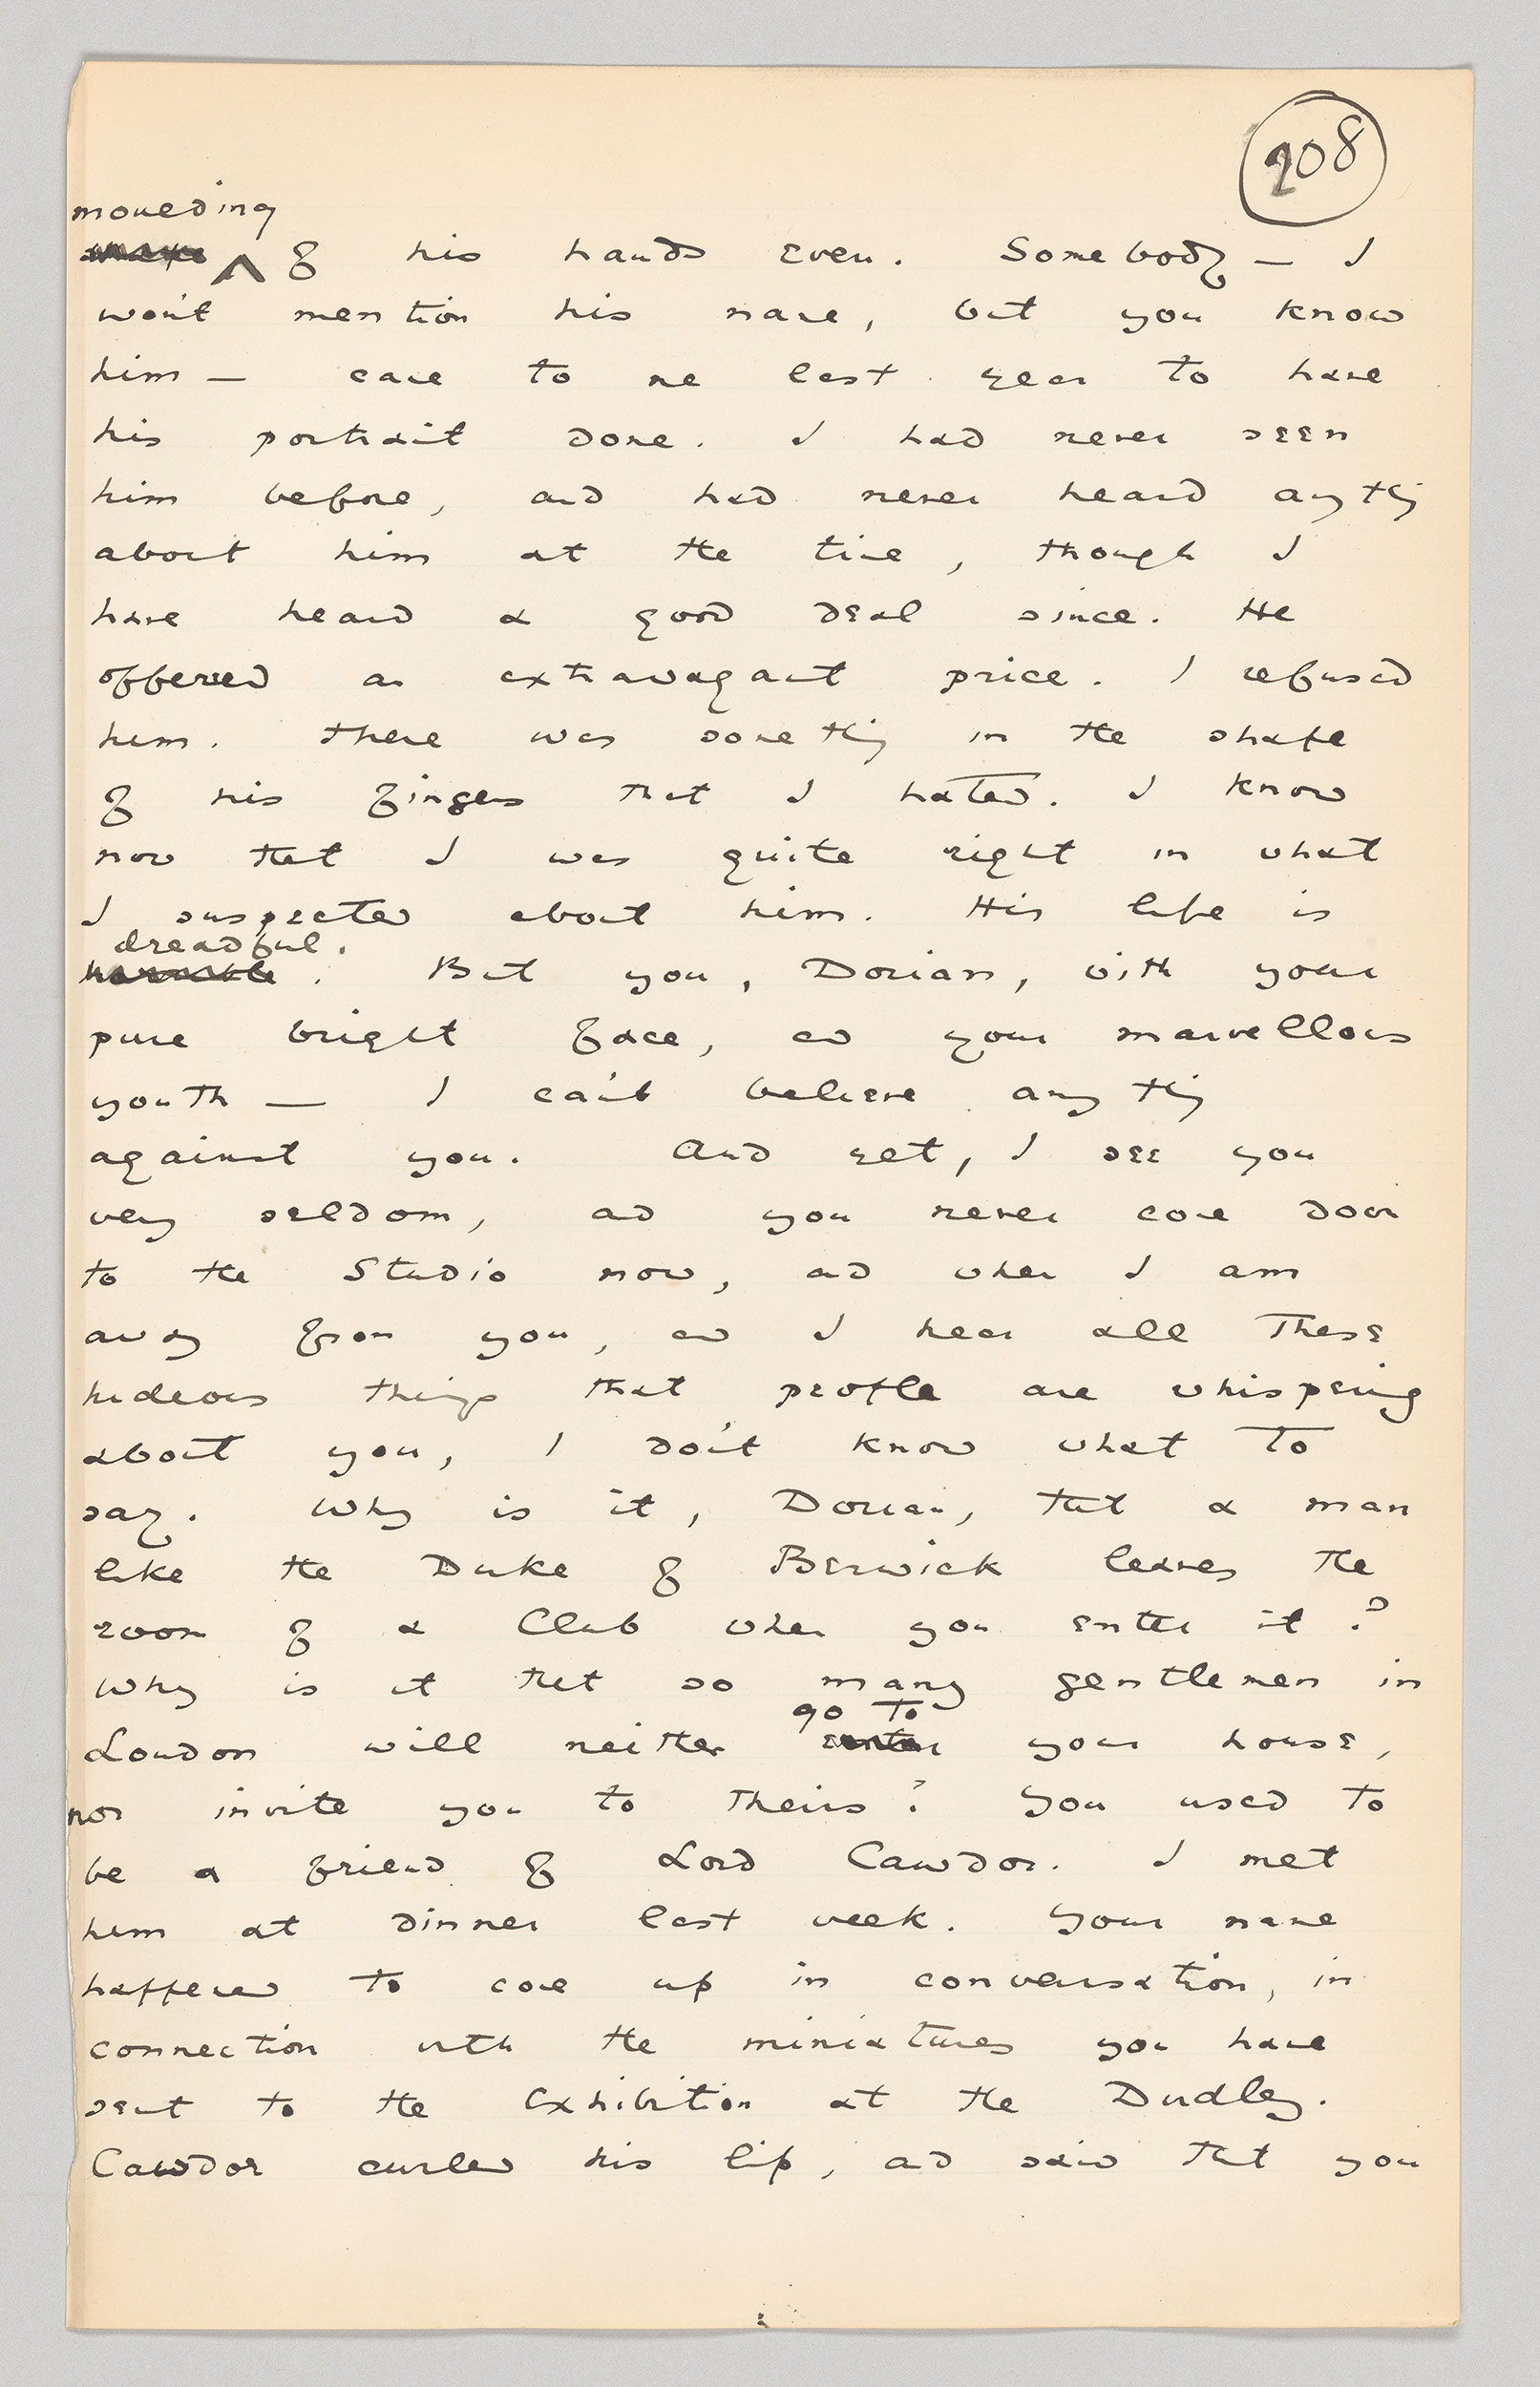 208
moulding
shape ^ of his hands even. Somebody — I
won't mention his name, but you know
him — came to me last year to have
his portrait done. I had never seen
him before, and had never heard anything
about him at the time, though I
have heard a good deal since. He
offered an extravagant price. I refused
him. There was something in the shape
of his fingers that I hated. I know
now that I was quite right in what
I suspected about him. His life is
dreadful.
horrible. But you, Dorian, with your
pure bright face, and your marvellous
youth — I can't believe anything
against you. And yet, I see you
very seldom, and you never come down
to the Studio now, and when I am
away from you, and I hear all these
hideous things that people are whispering
about you, I don't know what to
say. Why is it, Dorian, that a man
like the Duke of Berwick leaves the
room of a Club when you enter it?
Why is it that so many gentlemen in
go to
London will neither enter your house,
nor invite you to theirs? You used to
be a friend of Lord Cawdor. I met
him at dinner last week. Your name
happened to come up in conversation, in
connection with the miniatures you have
sent to the Exhibition at the Dudley.
Cawdor curled his lip, and said that you